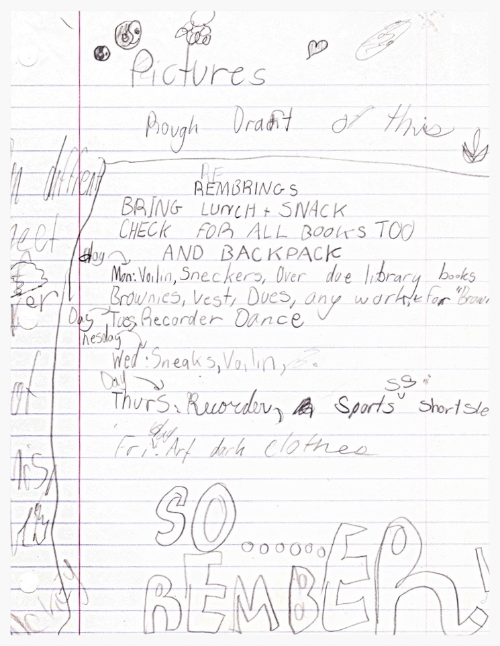 Pictures
Rough Draft of this
RE
REMBRINGS
BRING LUNCH + SNACK
CHECK FOR ALL BOOKS TOO
AND BACKPACK
day
Mon: Voilin, Sneckers, Over due library books
Brownies, Vest, Dues, any work for "Brown
Day
Tues Recorder Dance
nesday
Wed: Sneaks, Voilin,
Day
Thurs: Recorder, Sports short sle
ss
Fri: Art dark clothes
SO......
REMBER!